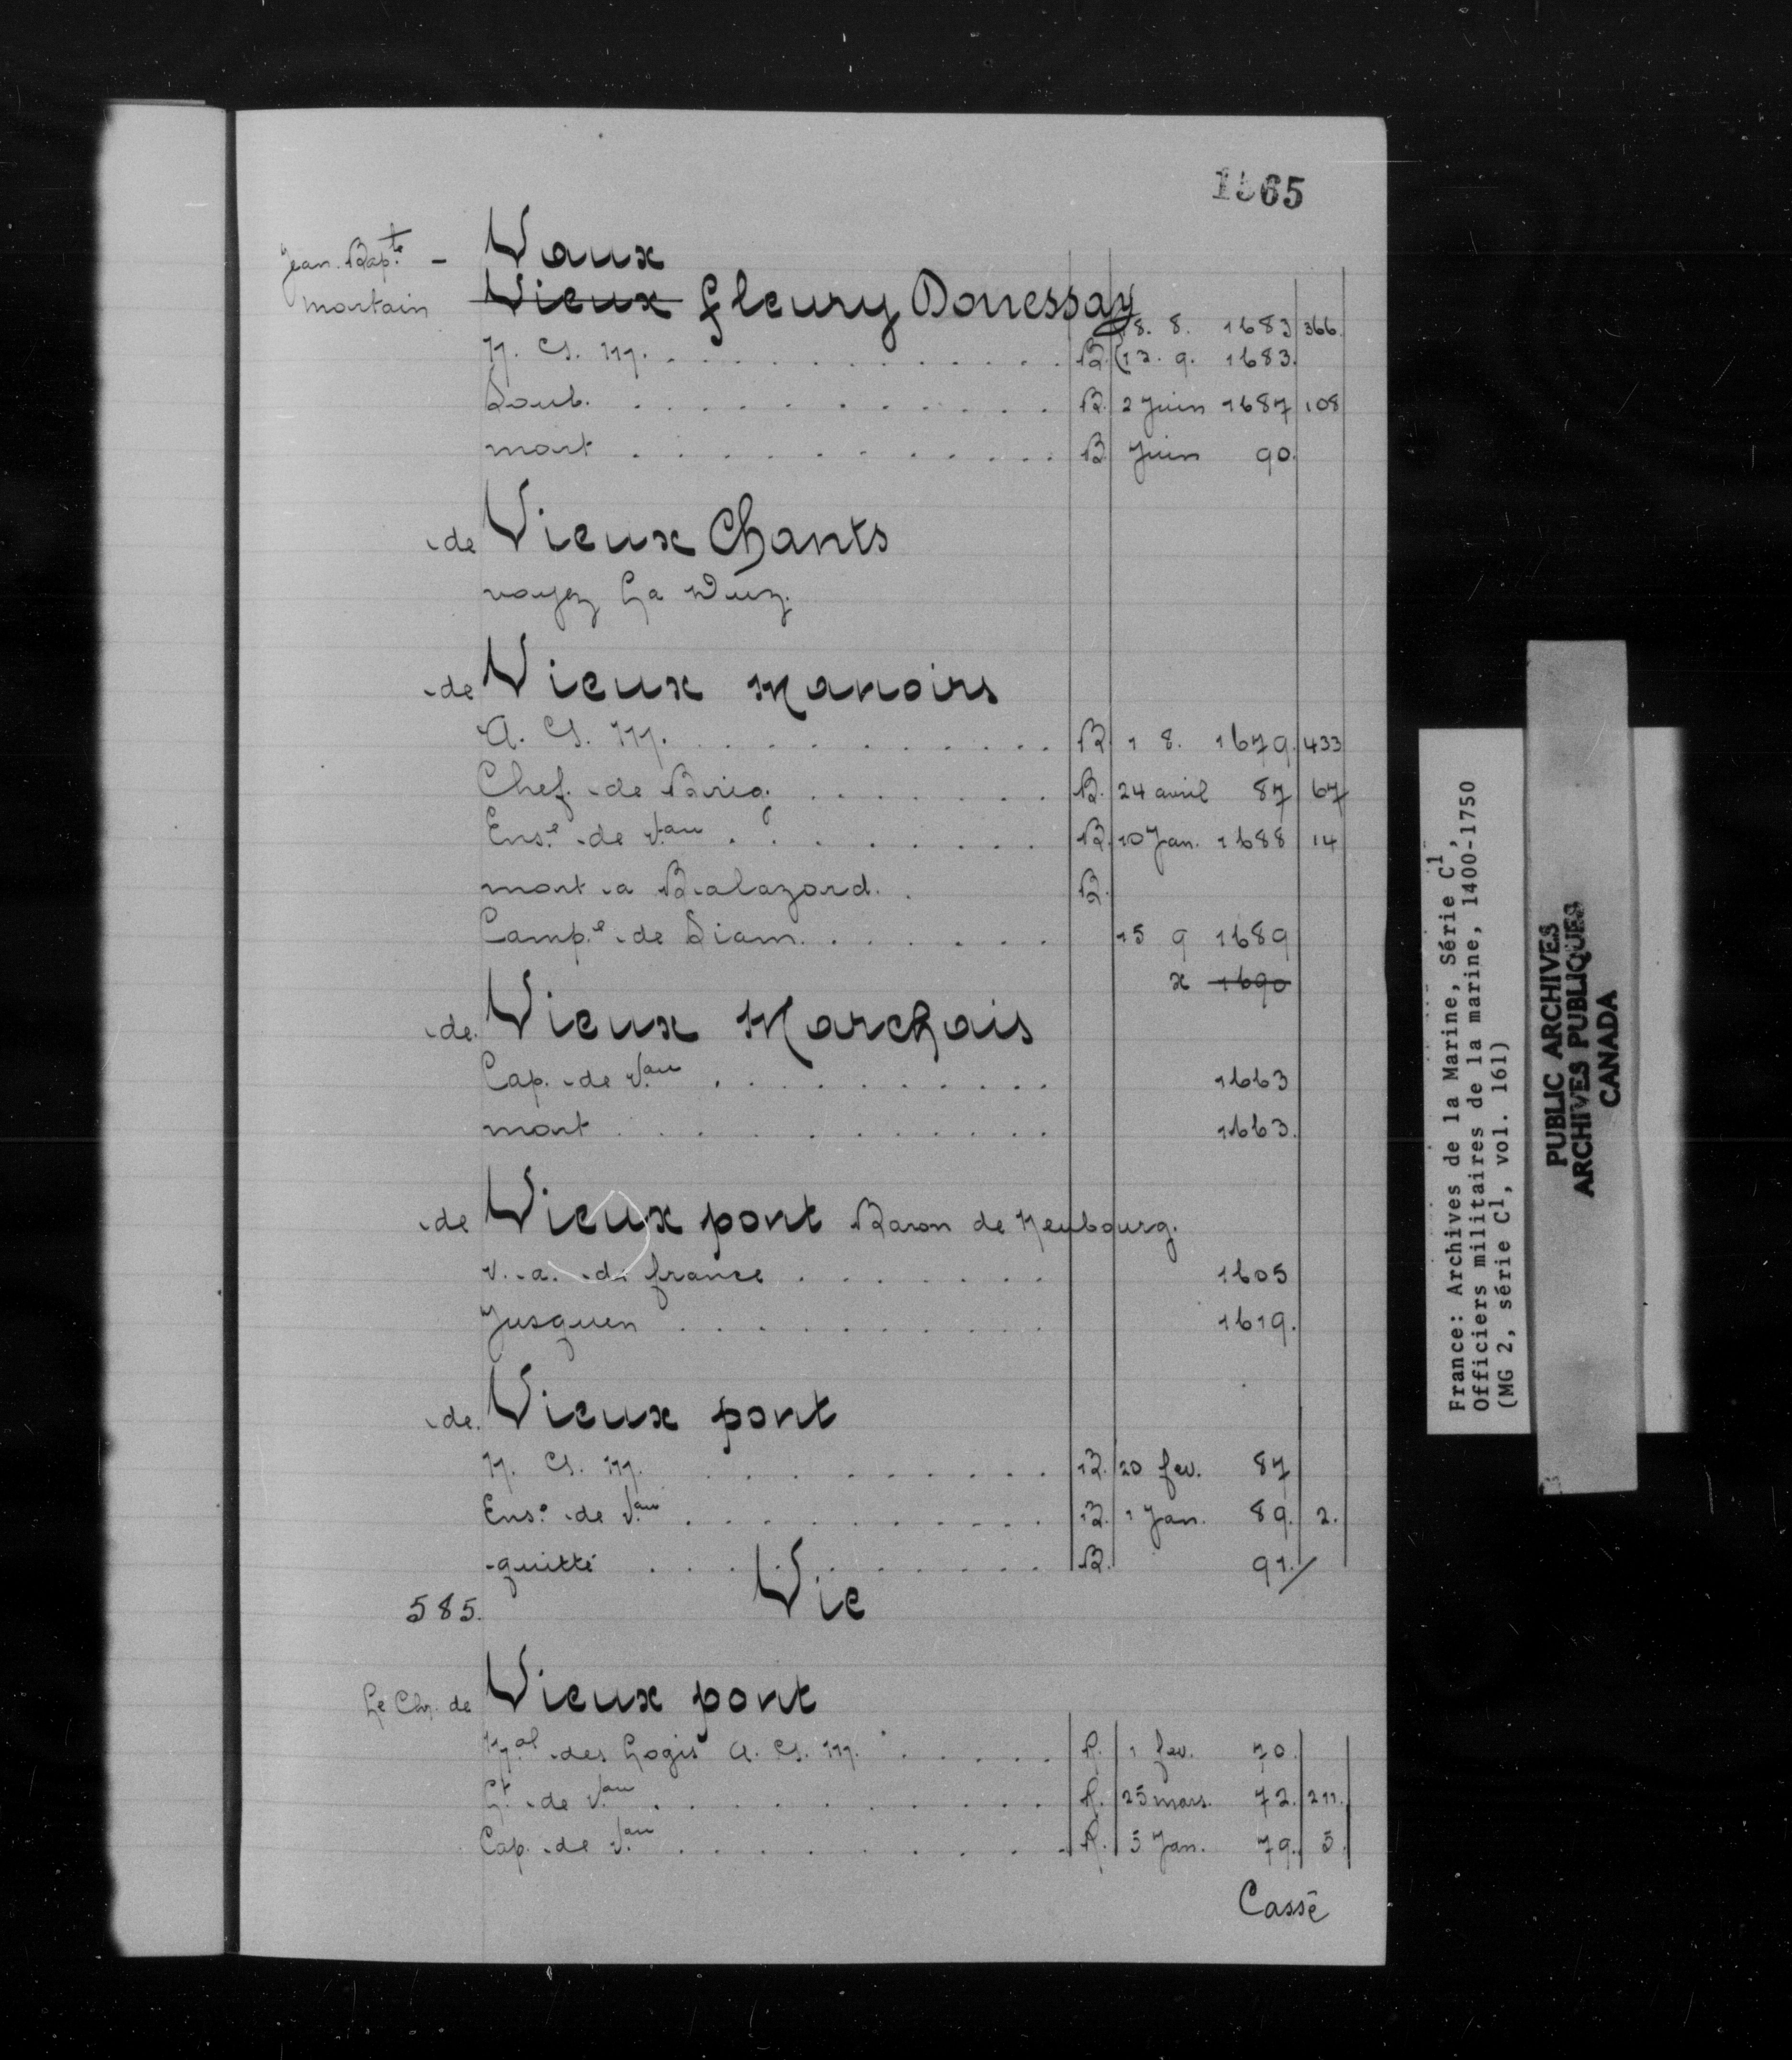 1565
Jean. Bapte - Vaux
mortain Vieux fleury Donessay
18. 8. 1683 366.
N. G. M. . . . B. (13. 9. 1683.
Soub. . . . B. 2 Juin 1687 108
mort . . . B Juin 90.
de Vieux Chants
voyez La Duz.
de Vieux Manoirs
A. G. M. . . . B 1 8. 1679. 433
Chef. de Brig. . . . B. 24 avril 87 67
Ense de Vau . . . B. 10 Jan. 1688 14
mort a Balazord. . B.
Campe de Siam. . . . 15 9 1689
x 1690
de Vieux Marchais
Cap. de Vau . . . 1663
mort . . . 1663.
de Vieux pont Baron de Neubourg.
V. a. de france . . . 1605
Jusquen . . . 1619.
de Vieux pont
N. G. M. . . . B. 20 fev. 87
Ense de Vau . . . B. 1 Jan. 89. 2.
quitté . . . B. 91./
Vie
585.
Le Chr. de Vieux pont
Mal des Logis A. G. M. . . . R. 1 fev. 70.
Lt de Vau . . . R. 25 mars. 72. 211.
Cap. de Vau . . . R. 5 Jan. 79. 5.
Cassé
France: Archives de la Marine, Série C1,
Officiers militaires de la marine, 1400-1750
(MG 2, série C1, vol. 161)
PUBLIC ARCHIVES
ARCHIVES PUBLIQUES
CANADA